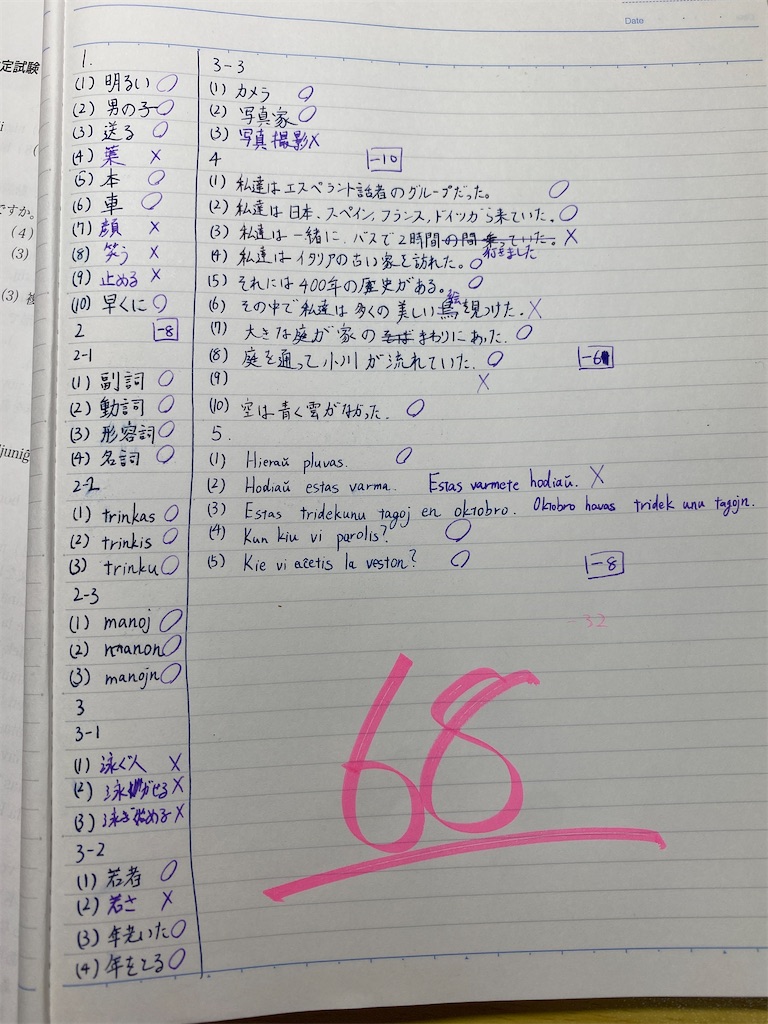 Date
定試験
ですか。
(4)
(3)
(3)
1.
(1) 明るい ○
(2) 男の子 ○
(3) 送る ○
(4) 葉 ×
(5) 本 ○
(6) 車 ○
(7) 顔 ×
(8) 笑う ×
(9) 止める ×
(10) 早くに ○
2 -8
2-1
(1) 副詞 ○
(2) 動詞 ○
(3) 形容詞 ○
(4) 名詞 ○
2-2
(1) trinkas ○
(2) trinkis ○
(3) trinku ○
2-3
(1) manoj ○
(2) manon ○
(3) manojn ○
3
3-1
(1) 泳ぐ人 ×
(2) 泳がせる ×
(3) 泳ぎ始める ×
3-2
(1) 若者 ○
(2) 若さ ×
(3) 年老いた ○
(4) 年をとる ○
3-3
(1) カメラ ○
(2) 写真家 ○
(3) 写真撮影 ×
4 -10
(1) 私達はエスペラント話者のグループだった。 ○
(2) 私達は日本、スペイン、フランス、ドイツから来ていた。 ○
(3) 私達は一緒に、バスで2時間の間乗っていた。 ×
行きました
(4) 私達はイタリアの古い家を訪れた。 ○
(5) それには400年の歴史がある。 ○
絵
(6) その中で私達は多くの美しい鳥を見つけた。 ×
(7) 大きな庭が家のそばまわりにあった。 ○
(8) 庭を通って小川が流れていた。 ○ -6
(9) ×
(10) 空は青く雲がなかった。 ○
5.
(1) Hieraŭ pluvas. ○
(2) Hodiaŭ estas varma. Estas varmete hodiaŭ. ×
(3) Estas tridekunu tagoj en oktobro. Oktobro havas tridek unu tagojn.
(4) Kun kiu vi parolis? ○
(5) Kie vi aĉetis la veston? ○
-8
-32
68